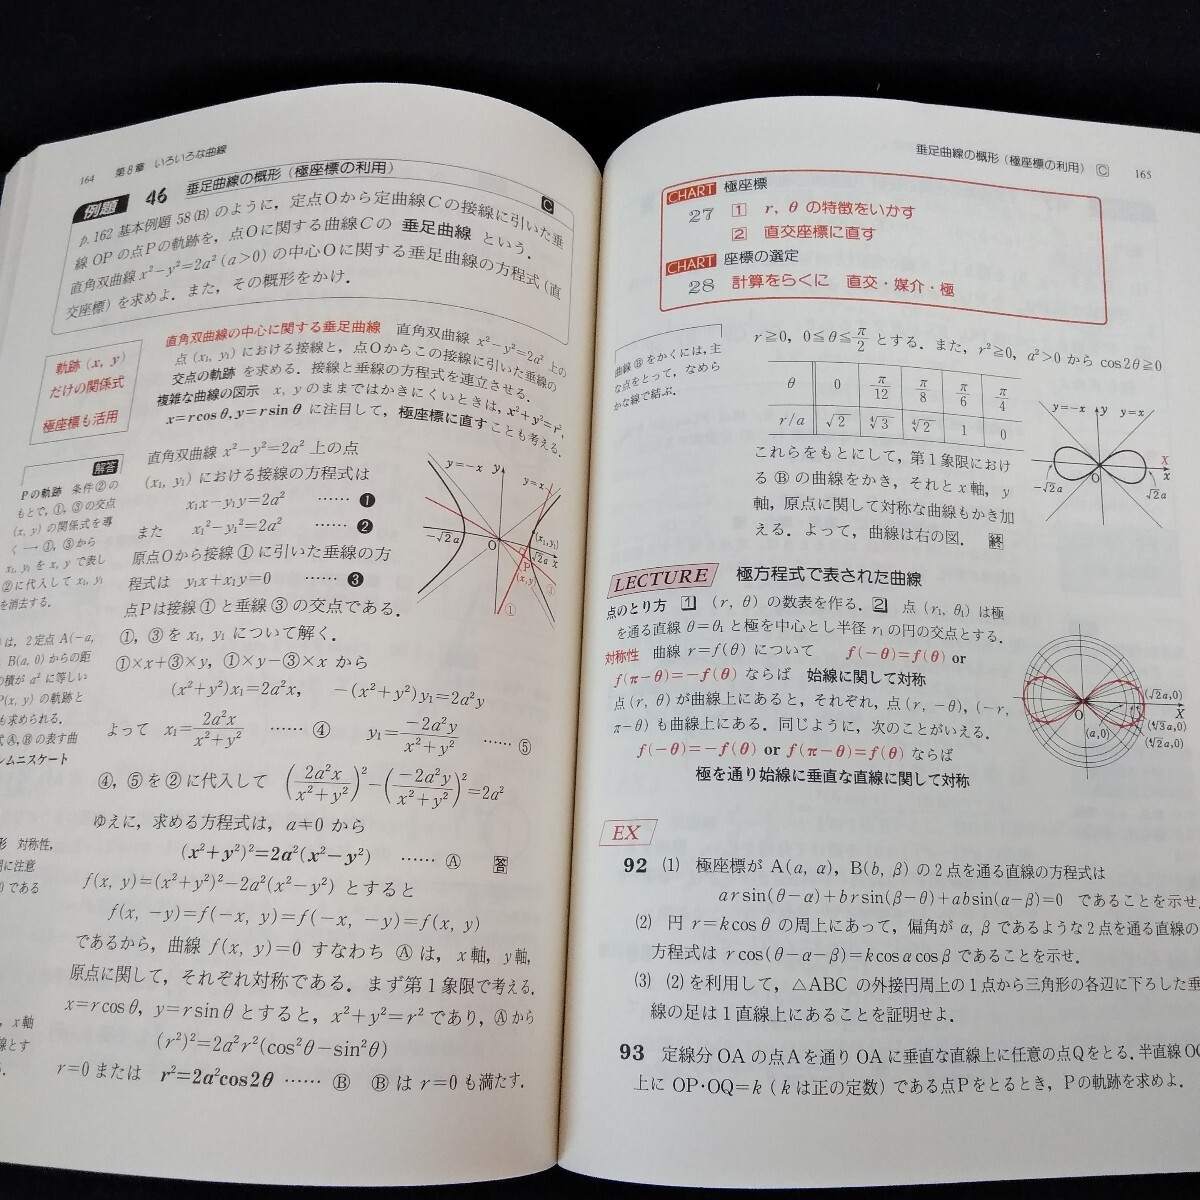 164 第8章 いろいろな曲線
例題 46 垂足曲線の概形(極座標の利用) C
p.162 基本例題 58(B) のように,定点Oから定曲線Cの接線に引いた垂
線 OP の点Pの軌跡を,点Oに関する曲線Cの 垂足曲線 という.
直角双曲線 x²−y²=2a² (a>0) の中心Oに関する垂足曲線の方程式(直
交座標)を求めよ.また,その概形をかけ.
軌跡 (x, y)
だけの関係式
極座標も活用
直角双曲線の中心に関する垂足曲線 直角双曲線 x²−y²=2a² 上の
点 (x₁, y₁) における接線と,点Oからこの接線に引いた垂線の
交点の軌跡 を求める.接線と垂線の方程式を連立させる.
複雑な曲線の図示 x, y のままではかきにくいときは,x²+y²=r²,
x=rcosθ, y=rsinθ に注目して,極座標に直すことも考える.
解答
Pの軌跡 条件②の
もとで,①,③の交点
(x, y) の関係式を導
く → ①,③から
x₁, y₁ を x, y で表し
②に代入して x₁, y₁
を消去する.
は,2定点 A(−a,
B(a, 0) からの距
の積が a² に等しい
P(x, y) の軌跡と
も求められる.
式Ⓐ,Ⓑの表す曲
ムニスケート
形 対称性,
間に注意
である
, x軸
線とす
直角双曲線 x²−y²=2a² 上の点
(x₁, y₁) における接線の方程式は
x₁x−y₁y=2a² …… ❶
また x₁²−y₁²=2a² …… ❷
原点Oから接線①に引いた垂線の方
程式は y₁x+x₁y=0 …… ❸
点Pは接線①と垂線③の交点である.
①,③を x₁, y₁ について解く.
①×x+③×y, ①×y−③×x から
(x²+y²)x₁=2a²x, −(x²+y²)y₁=2a²y
よって x₁=2a²x/(x²+y²) …… ④ y₁=−2a²y/(x²+y²) …… ⑤
④,⑤を②に代入して (2a²x/(x²+y²))²−(−2a²y/(x²+y²))²=2a²
ゆえに,求める方程式は,a≠0 から
(x²+y²)²=2a²(x²−y²) …… Ⓐ 答
f(x, y)=(x²+y²)²−2a²(x²−y²) とすると
f(x, −y)=f(−x, y)=f(−x, −y)=f(x, y)
であるから,曲線 f(x, y)=0 すなわち Ⓐ は,x軸,y軸,
原点に関して,それぞれ対称である.まず第1象限で考える.
x=rcosθ, y=rsinθ とすると,x²+y²=r² であり,Ⓐから
(r²)²=2a²r²(cos²θ−sin²θ)
r=0 または r²=2a²cos2θ …… Ⓑ Ⓑは r=0 も満たす.
y=−x y y=x
−√2a O √2a x
(x₁, y₁)
P
(x, y)
① ③
垂足曲線の概形(極座標の利用) C 165
CHART 極座標
27 1 r, θ の特徴をいかす
2 直交座標に直す
CHART 座標の選定
28 計算をらくに 直交・媒介・極
曲線Ⓑをかくには,主
な点をとって,なめら
かな線で結ぶ.
r≧0, 0≦θ≦π/2 とする.また,r²≧0, a²>0 から cos2θ≧0
θ 0 π/12 π/8 π/6 π/4
r/a √2 ⁴√3 ⁴√2 1 0
これらをもとにして,第1象限におけ
る Ⓑ の曲線をかき,それと x軸,y
軸,原点に関して対称な曲線もかき加
える.よって,曲線は右の図. 終
y=−x y y=x
X
−√2a O √2a x
LECTURE 極方程式で表された曲線
点のとり方 1 (r, θ) の数表を作る.2 点 (r₁, θ₁) は極
を通る直線 θ=θ₁ と極を中心とし半径 r₁ の円の交点とする.
対称性 曲線 r=f(θ) について f(−θ)=f(θ) or
f(π−θ)=−f(θ) ならば 始線に関して対称
点 (r, θ) が曲線上にあると,それぞれ,点 (r, −θ), (−r,
π−θ) も曲線上にある.同じように,次のことがいえる.
f(−θ)=−f(θ) or f(π−θ)=f(θ) ならば
極を通り始線に垂直な直線に関して対称
O (a,0) (√2a,0)
X
(⁴√3a,0)
(⁴√2a,0)
EX
92 (1) 極座標が A(a, α), B(b, β) の2点を通る直線の方程式は
arsin(θ−α)+brsin(β−θ)+absin(α−β)=0 であることを示せ.
(2) 円 r=kcosθ の周上にあって,偏角が α, β であるような2点を通る直線の
方程式は rcos(θ−α−β)=kcosαcosβ であることを示せ.
(3) (2)を利用して,△ABC の外接円周上の1点から三角形の各辺に下ろした垂
線の足は1直線上にあることを証明せよ.
93 定線分 OA の点Aを通り OA に垂直な直線上に任意の点Qをとる.半直線 OQ
上に OP・OQ=k (k は正の定数) である点Pをとるとき,Pの軌跡を求めよ.